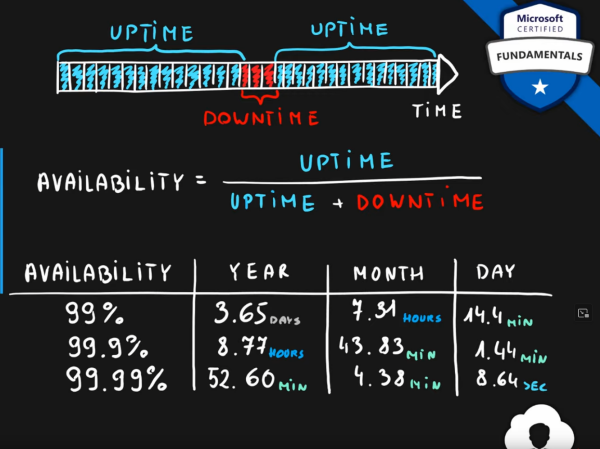 UPTIME
UPTIME
Microsoft
CERTIFIED
FUNDAMENTALS
DOWNTIME
TIME
AVAILABILITY = UPTIME
UPTIME + DOWNTIME
AVAILABILITY YEAR MONTH DAY
99% 3.65 DAYS 7.31 HOURS 14.4 MIN
99.9% 8.77 HOURS 43.83 MIN 1.44 MIN
99.99% 52.60 MIN 4.38 MIN 8.64 SEC